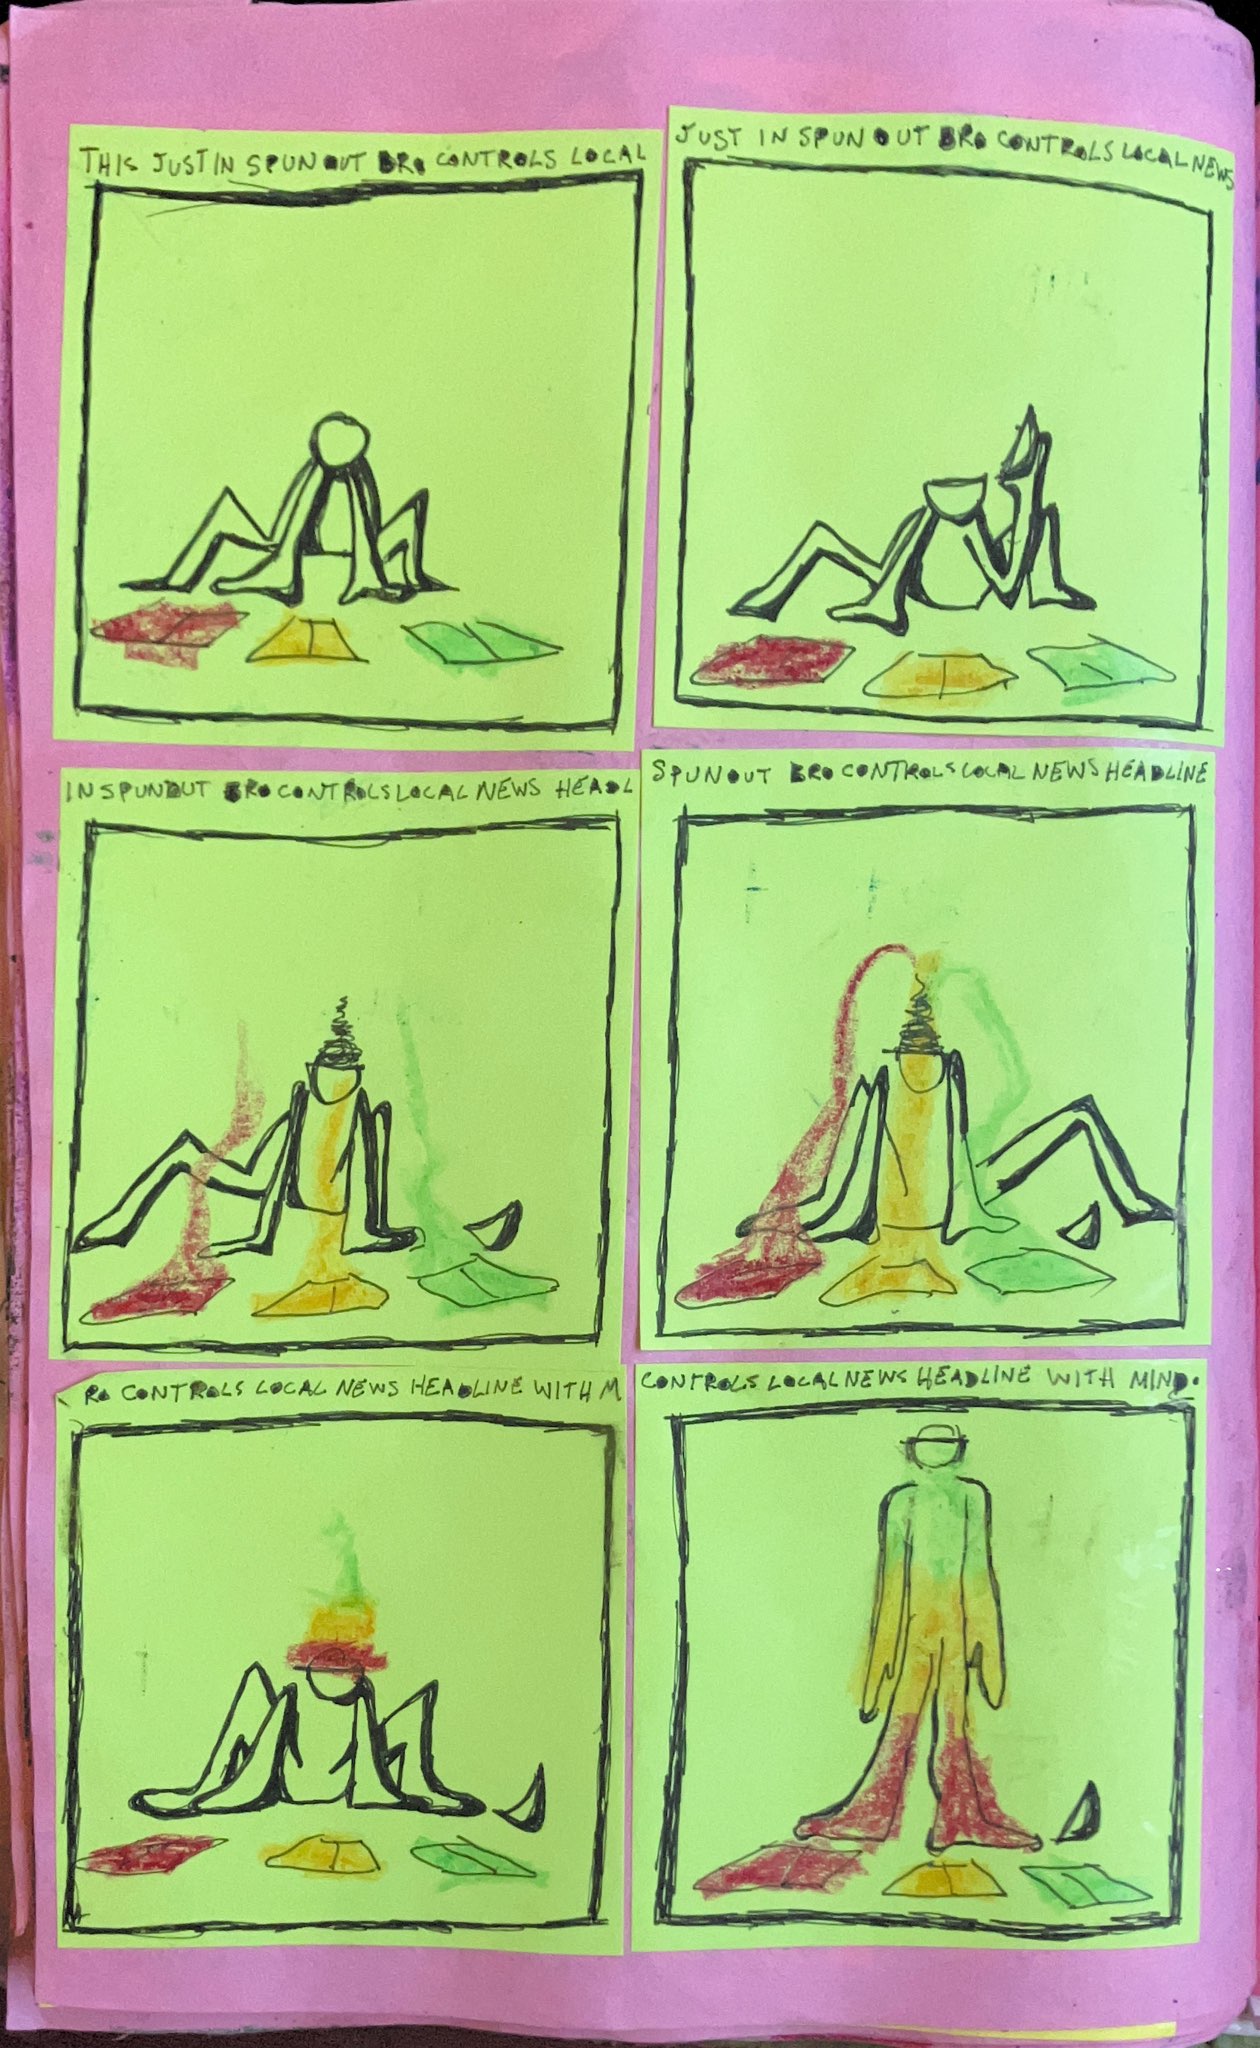 THIS JUST IN SPUN OUT BRO CONTROLS LOCAL
JUST IN SPUN OUT BRO CONTROLS LOCAL NEWS
IN SPUN OUT BRO CONTROLS LOCAL NEWS HEADL
SPUN OUT BRO CONTROLS LOCAL NEWS HEADLINE
RO CONTROLS LOCAL NEWS HEADLINE WITH M
CONTROLS LOCAL NEWS HEADLINE WITH MIND.